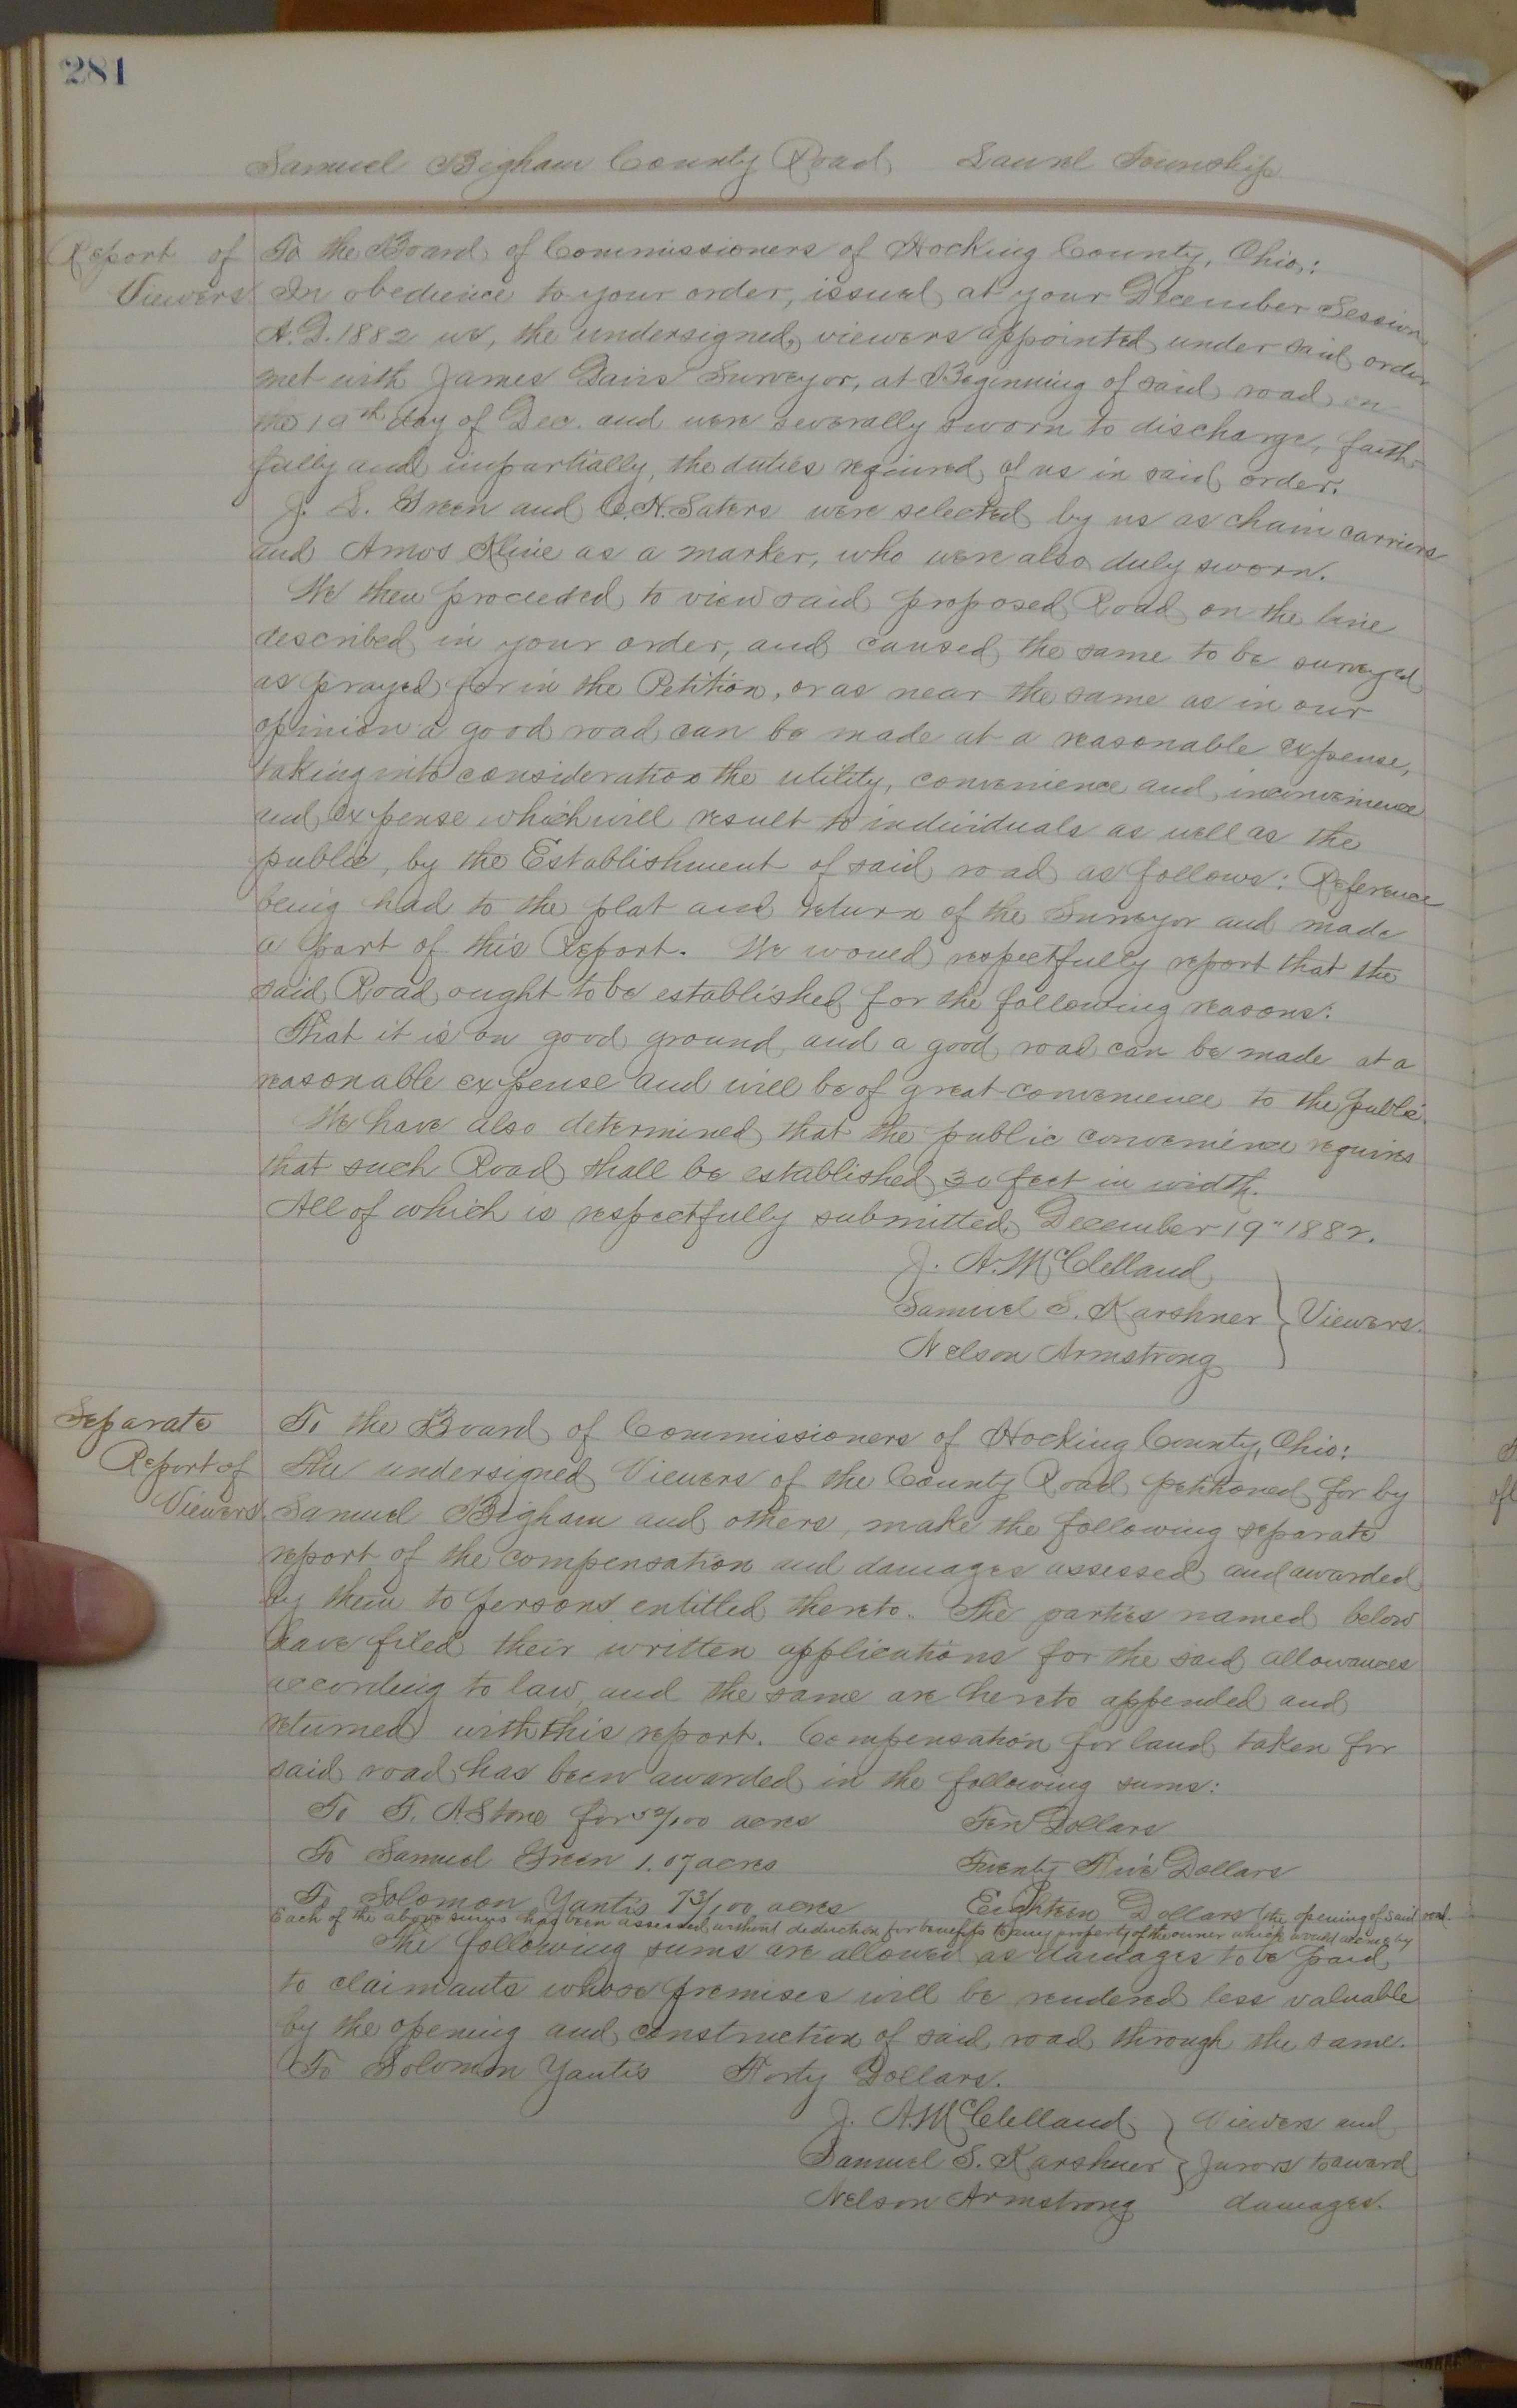 281
Samuel Bigham County Road Laurel Township
Report of
Viewers
To the Board of Commissioners of Hocking County, Ohio:
In obedience to your order, issued at your December Session
A.D. 1882 we, the undersigned, viewers appointed under said order
met with James Davis Surveyor, at Beginning of said road on
the 19th day of Dec. and were severally sworn to discharge, faith-
fully and impartially, the duties required of us in said order.
J. L. Green and C. N. Saters were selected by us as chain carriers
and Amos Kline as a marker, who were also duly sworn.
We then proceeded to view said proposed Road on the line
described in your order, and caused the same to be surveyed
as prayed for in the Petition, or as near the same as in our
opinion a good road can be made at a reasonable expense,
taking into consideration the utility, convenience and inconvenience
and expense which will result to individuals as well as the
public, by the Establishment of said road as follows: Reference
being had to the plat and return of the Surveyor and made
a part of this Report. We would respectfully report that the
said Road ought to be established for the following reasons:
That it is on good ground and a good road can be made at a
reasonable expense and will be of great convenience to the public.
We have also determined that the public convenience requires
that such Road shall be established 30 feet in width.
All of which is respectfully submitted December 19" 1882.
J. A. McClelland
Samuel S. Karshner } Viewers.
Nelson Armstrong
Separate
Report of
Viewers.
To the Board of Commissioners of Hocking County, Ohio:
The undersigned Viewers of the County Road petitioned for by
Samuel Bigham and others, make the following separate
report of the compensation and damages assessed and awarded
by them to persons entitled thereto. The parties named below
have filed their written applications for the said allowances
according to law, and the same are hereto appended and
returned with this report. Compensation for land taken for
said road has been awarded in the following sums:
To T. A Stone for /100 acres Ten Dollars
To Samuel Green 1.07 acres Twenty Five Dollars
To Solomon Yantis 73/100 acres Eighteen Dollars
Each of the above sums has been assessed without deduction for benefits to any property of the owner which would accrue by
the opening of said road.
The following sums are allowed as damages to be paid
to claimants whose premises will be rendered less valuable
by the opening and construction of said road through the same.
To Solomon Yantis Forty Dollars.
J. A. McClelland } Viewers and
Samuel S. Karshner } Jurors to award
Nelson Armstrong damages.